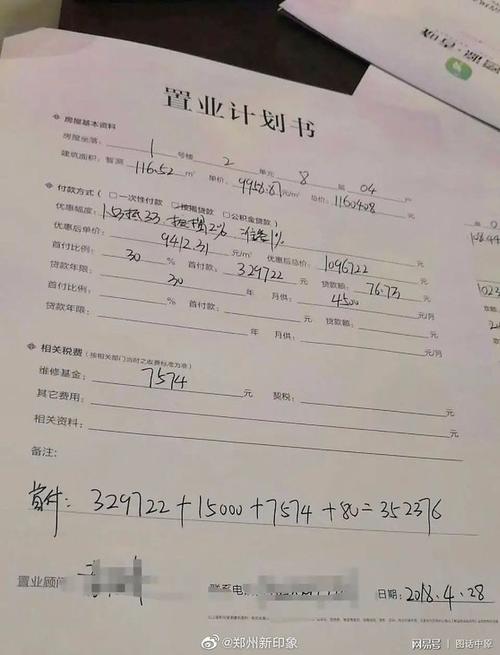 置业计划书
房屋基本资料
房屋坐落: 1 号楼 2 单元 8 层 04 户
建筑面积: 暂测 116.52 m² 单价: 9958.81 元/m² 总价: 1160408 元
付款方式 (□一次性付款 □按揭贷款 □公积金贷款)
优惠幅度: 1.5抵3.3 按揭2% 准签1%
优惠后单价: 9412.31 元/m² 优惠后总价: 1096722 元
首付比例: 30 % 首付款: 329722 元 贷款额: 76.73 元
贷款年限: 30 年 月供: 4500 元/月
首付比例: % 首付款: 元 贷款额: 元
贷款年限: 年 月供: 元/月
相关税费 (按相关部门当时之收费标准为准)
维修基金: 7574 元 契税: 元
其它费用: 元
相关资料:
备注:
首付: 329722+15000+7574+80=352376
置业顾问 联系电 日期: 2018.4.28
@郑州新印象
网易号 | 图话中原